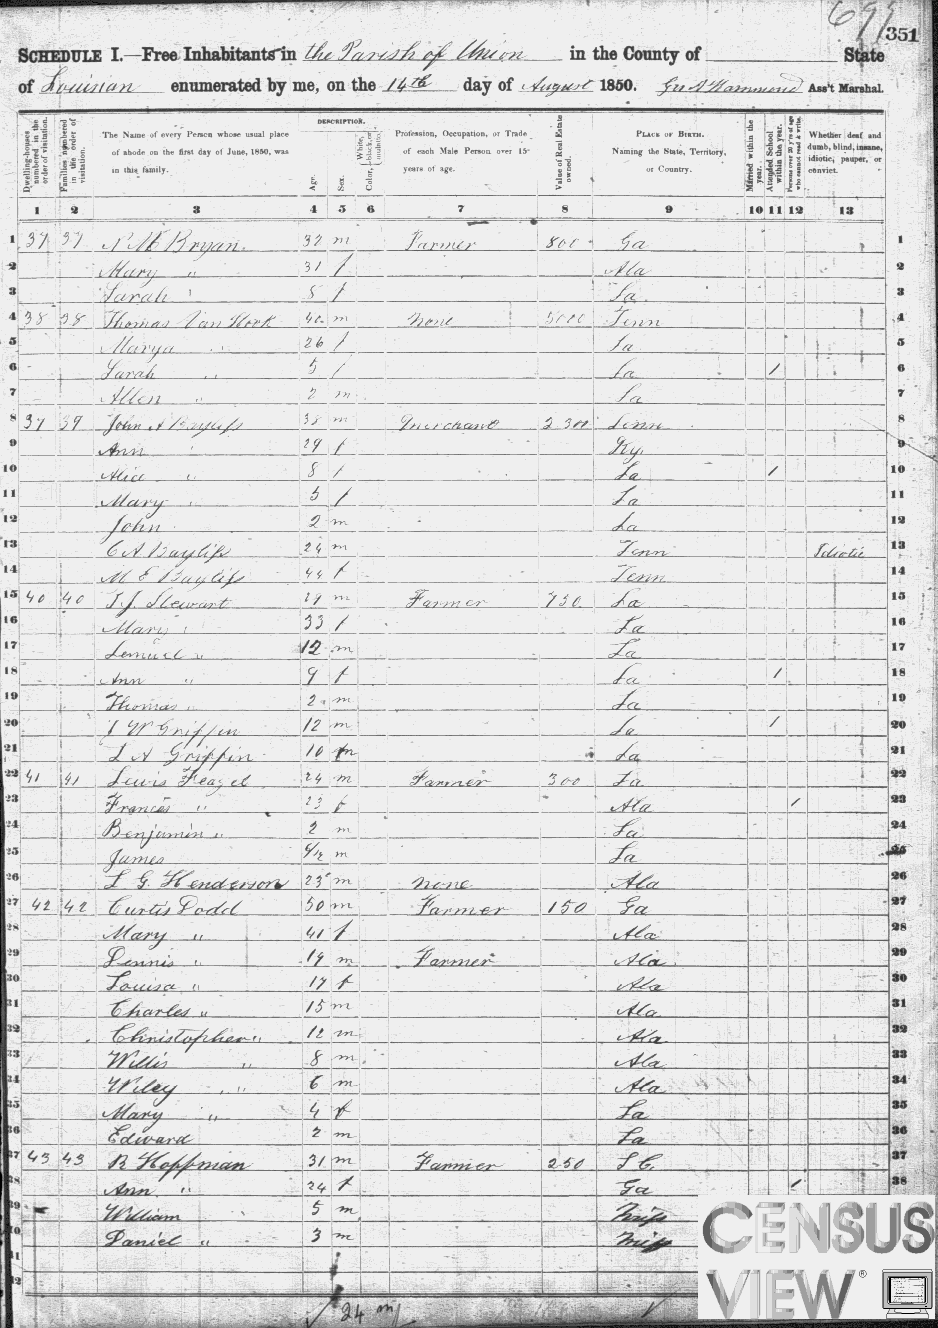 699 351
SCHEDULE I.—Free Inhabitants in the Parish of Union in the County of State
of Louisian enumerated by me, on the 14th day of August 1850. Hammond Ass't Marshal.
Dwelling-houses numbered in the order of visitation.
Families numbered in the order of visitation.
The Name of every Person whose usual place of abode on the first day of June, 1850, was in this family.
DESCRIPTION.
Age.
Sex.
Color, White, black, or mulatto.
Profession, Occupation, or Trade of each Male Person over 15 years of age.
Value of Real Estate owned.
PLACE OF BIRTH. Naming the State, Territory, or Country.
Married within the year.
Attended School within the year.
Persons over 20 y'rs of age who cannot read & write.
Whether deaf and dumb, blind, insane, idiotic, pauper, or convict.
1 2 3 4 5 6 7 8 9 10 11 12 13
1 37 37 Bryan 37 m Farmer 800 Ga 1
2 Mary " 31 f Ala 2
3 Sarah " 8 f La 3
4 38 38 Thomas Van Hook 40 m None 5000 Tenn 4
5 Marya " 26 f La 5
6 Sarah " 5 f La / 6
7 Allen " 2 m La 7
8 37 39 John A Bayliss 38 m Merchant 2300 Tenn 8
9 Ann " 29 f Ky. 9
10 Alice " 8 f La / 10
11 Mary " 5 f La 11
12 John " 2 m La 12
13 C A Bayliss 24 m Tenn Idiotic 13
14 M E Bayliss 44 f Tenn 14
15 40 40 T J Stewart 29 m Farmer 750 La 15
16 Mary " 33 f La 16
17 Lemuel " 12 m La 17
18 Ann " 9 f La / 18
19 Thomas " 2 m La 19
20 W Griffin 12 m La / 20
21 L A Griffin 10 m La 21
22 41 41 Lewis Feazel 24 m Farmer 300 La 22
23 Frances " 23 f Ala / 23
24 Benjamin " 2 m La 24
25 James m La 25
26 L G Henderson 25 m None Ala 26
27 42 42 Curtis Dodd 50 m Farmer 150 Ga 27
28 Mary " 41 f Ala 28
29 Dennis " 19 m Farmer Ala 29
30 Louisa " 17 f Ala 30
31 Charles " 15 m Ala 31
32 Christopher " 12 m Ala 32
33 Willis " 8 m Ala 33
34 Wiley " 6 m Ala 34
35 Mary " 4 f La 35
36 Edward 2 m La 36
37 43 43 R Hoffman 31 m Farmer 250 S C. 37
38 Ann " 24 f Ga / 38
39 William 5 m Miss
40 Daniel " 3 m Miss
41
42
24 m
CENSUS
VIEW®